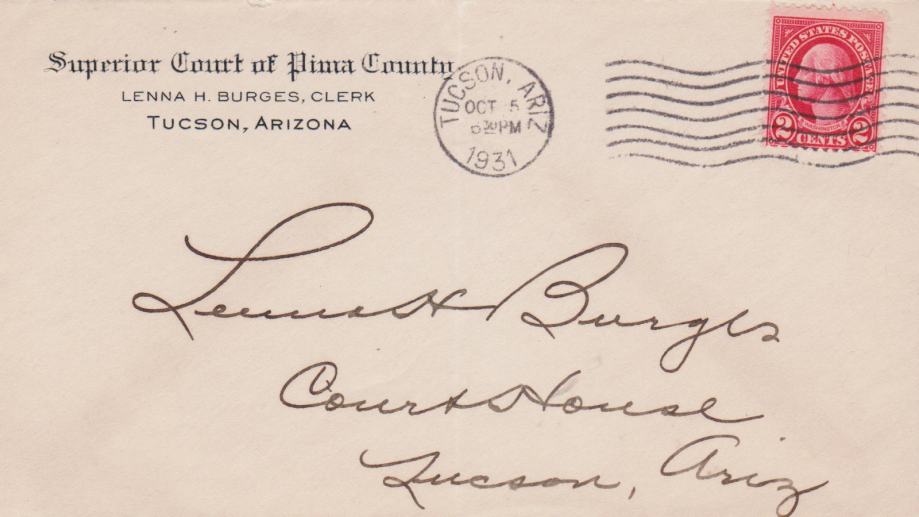 Superior Court of Pima County
LENNA H. BURGES, CLERK
TUCSON, ARIZONA
TUCSON, ARIZ
OCT 5
630PM
1931
UNITED STATES POSTAGE
WASHINGTON
2 CENTS 2
Lenna H Burges
Court House
Tucson, Ariz